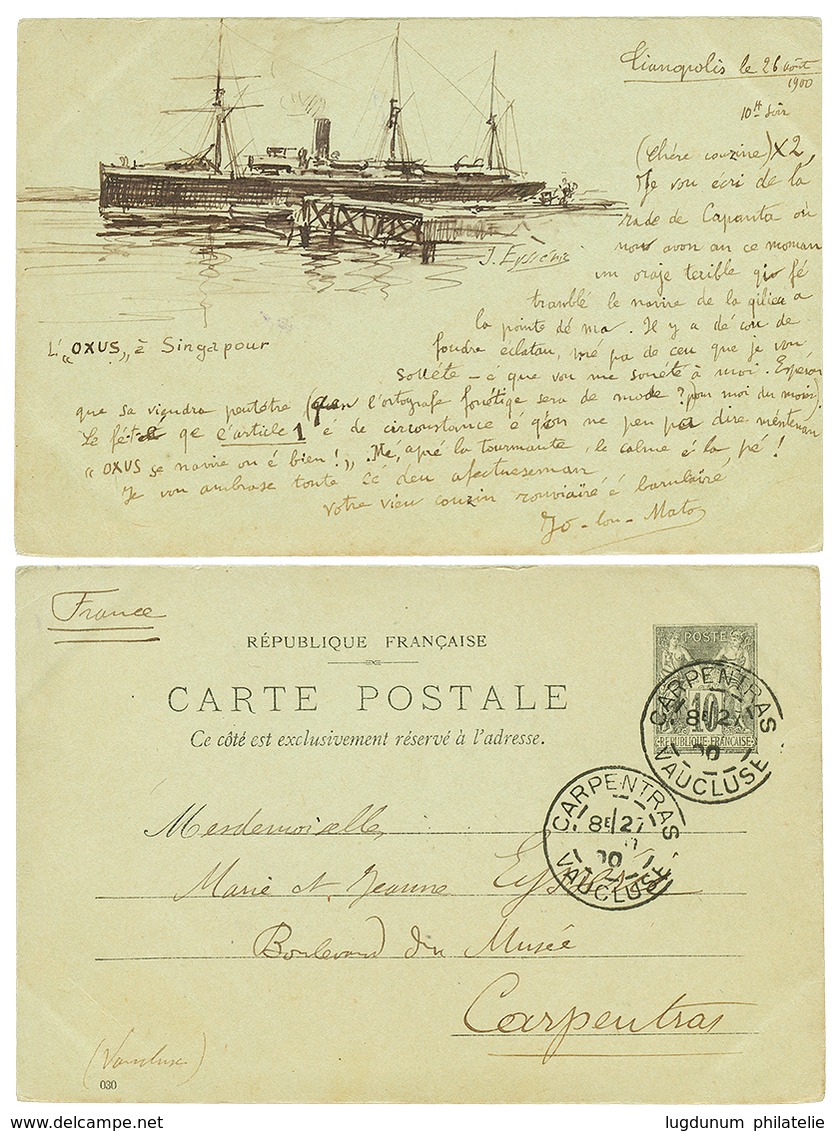 Lianopolis le 26 août
1900
10H soir
(Chère couzine) X 2,
Je vou écri de la
rade de Capanta où
nous avon au ce moman
un oraje terible qui fé
tramblé le navire de la qileu a
la pointe dé ma. Il y a dé cou de
foudre éclatan, mé pa de ceu que je vou
souéte - é que vou me souéte à moi. Espéron
que sa viendra peutétre (quan l'ortografe fonétiqe sera de mode ? pour moi du moins).
Le fét qe l'article 1 é de circonstance é q'on ne peu pa dire mintenan
"OXUS se navire ou é bien !". Mé, apré la tourmante, le calme é la, pé !
Je vou anbrase toute lé deu afectueseman
votre vieu couzin rouviaïré é barulaïré
Jo-lou-Mato
J. Eysséric
L' "OXUS" à Singapour
France
RÉPUBLIQUE FRANÇAISE
CARTE POSTALE
Ce côté est exclusivement réservé à l'adresse.
POSTE
10
RÉPUBLIQUE FRANÇAISE
CARPENTRAS
8E 27
00
VAUCLUSE
CARPENTRAS
8E 27
00
VAUCLUSE
Mesdemoiselles
Marie et Jeanne Eysséric
Boulevard du Musée
Carpentras
(Vaucluse)
030
lugdunum philatelie